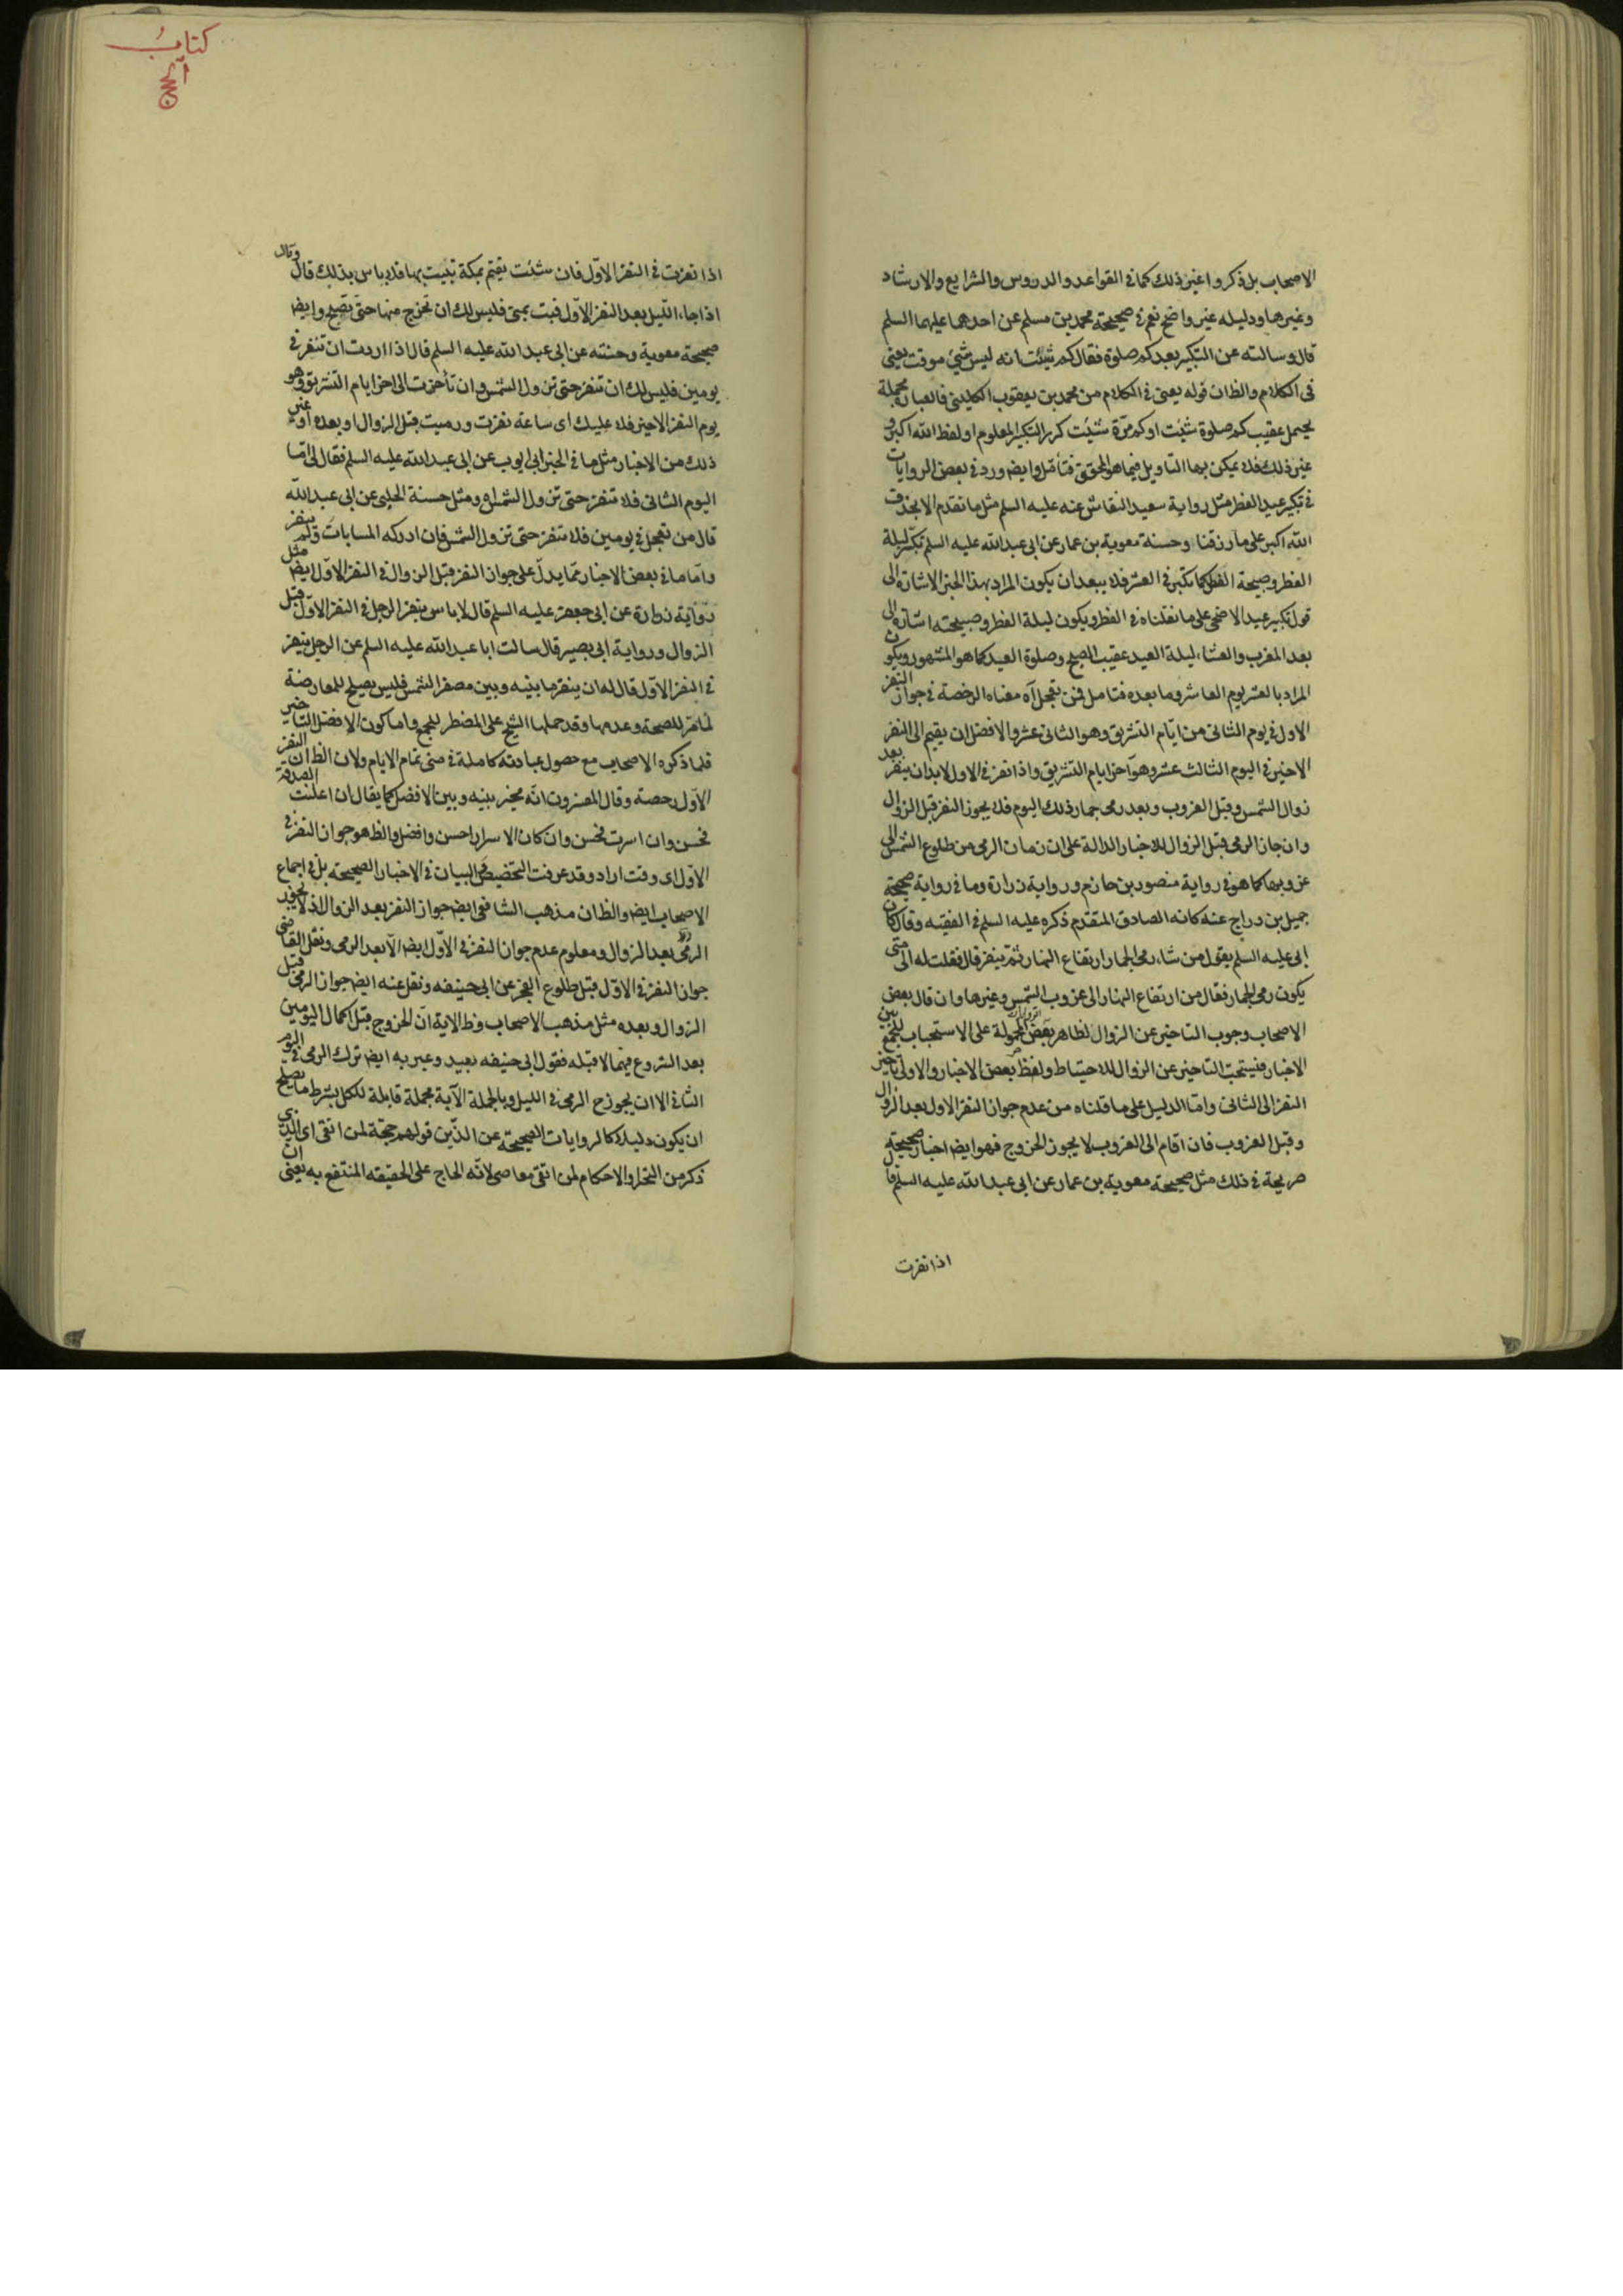 الاصحاب بل ذكروا غير ذلك كما فى القواعد والدروس والشرايع والارشاد
وغيرها ودليله غير واضح نعم فى صحيحة محمد بن مسلم عن احدهما عليهما السلم
قال وسالته عن التكبير بعد كم صلوة فقال كم شئت انه ليس شئ موقت يعنى
فى الكلام والظان قوله يعنى فى الكلام من محمد بن يعقوب الكلينى فالعبارة مجملة
يحتمل عقيب كم صلوة شئت او كم مرة شئت كرر التكبير المعلوم او لفظ الله اكبر و
غير ذلك فلا يمكن بها التاويل فيما هو المحقق فتأمل وايضا ورد فى بعض الروايات
فى تكبير عيد الفطر مثل رواية سعيد النقاش عنه عليه السلم مثل ما تقدم الا بحذف
الله اكبر على ما رزقنا وحسنة معوية بن عمار عن ابى عبد الله عليه السلم تكبر ليلة
الفطر وصبيحة الفطر كما تكبر فى العشر فلا يبعد ان يكون المراد بهذا الخبر الاشارة الى
قول تكبير عيد الاضحى على ما نقلناه فى الفطر ويكون ليلة الفطر وصبيحته اشارة الى
بعد المغرب والعشاء ليلة العيد عقيب الصبح وصلوة العيد كما هو المشهور ويكون
المراد بالعشر يوم العاشر وما بعده فتامل فمن تعجل آه معناه الرخصة فى جواز النفر
الاول فى يوم الثانى من ايام التشريق وهو الثانى عشر والافضل ان يقيم الى النفر
الاخير فى اليوم الثالث عشر وهو آخر ايام التشريق واذا نفر فى الاول لابد ان ينفر بعد
زوال الشمس وقبل الغروب وبعد رمى جمار ذلك اليوم فلا يجوز النفر قبل الزوال
وان جاز الرمى قبل الزوال للاخبار الدالة على ان زمان الرمى من طلوع الشمس الى
غروبها كما هو فى رواية منصور بن حازم ورواية زرارة وما فى رواية صحيحة
جميل بن دراج عنه كانه الصادق المتقدم ذكره عليه السلم فى الفقيه وقال كان
ابى عليه السلم يقول من شاء رمى الجمار ارتفاع النهار ثم ينفر قال فقلت له الى متى
يكون رمى الجمار فقال من ارتفاع النهار الى غروب الشمس وغيرها وان قال بعض
الاصحاب وجوب التاخير عن الزوال لظاهر بعض الروايات المحمولة على الاستحباب للجمع بين
الاخبار فيستحب التاخير عن الزوال للاحتياط ولفظ بعض الاخبار والاولى تاخير
النفر الى الثانى واما الدليل على ما قلناه من عدم جواز النفر الاول بعد الزوال
وقبل الغروب فان اقام الى الغروب لا يجوز الخروج فهو ايضا اخبار صحيحة
صريحة فى ذلك مثل صحيحة معوية بن عمار عن ابى عبد الله عليه السلم قال
اذا نفرت
كتاب
الحج
اذا نفرت فى النفر الاول فان شئت تقيم بمكة تبيت بها فلا باس بذلك قال وقال
اذا جاء الليل بعد النفر الاول فبت بمنى فليس لك ان تخرج منها حتى تصبح وايضا
صحيحة معوية وحسنته عن ابى عبد الله عليه السلم قال اذا اردت ان تنفر فى
يومين فليس لك ان تنفر حتى تزول الشمس وان تأخرت الى اخر ايام التشريق وهو
يوم النفر الاخير فلا عليك اى ساعة نفرت ورميت قبل الزوال او بعده او غير
ذلك من الاخبار مثل ما فى الخبر ابى ايوب عن ابى عبد الله عليه السلم فقال لى اما
اليوم الثانى فلا تنفر حتى تزول الشمس ومثل حسنة الحلبى عن ابى عبد الله
قال من تعجل فى يومين فلا ينفر حتى تزول الشمس فان ادركه المسا بات ولم ينفر
واما ما فى بعض الاخبار مما يدل على جواز النفر قبل الزوال فى النفر الاول ايضا مثل
رواية زرارة عن ابى جعفر عليه السلم قال لا باس بنفر الرجل فى النفر الاول قبل
الزوال ورواية ابى بصير قال سالت ابا عبد الله عليه السلم عن الرجل ينفر
فى النفر الاول قال له ان ينفر ما بينه وبين مصفر الشمس فليس يصلح للمعارضة
لما مر للصحة وعدمها وقد حملها الشيخ على المضطر للجمع واما كون الافضل التاخير
فلما ذكره الاصحاب مع حصول عبادته كاملة فى منى تمام الايام ولان الظ ان النفر
الاول رخصة وقال المفسرون انه مخير بينه وبين الافضل كما يقال ان اعلنت الصدقة
فحسن وان اسررت فحسن وان كان الاسرار احسن وافضل والظ هو جواز النفر فى
الاول اى وقت اراد وقد عرفت التخصيص فى البيان فى الاخبار الصحيحة بل فى اجماع
الاصحاب ايضا والظان مذهب الشافعى ايضا جواز النفر بعد الزوال اذ لا يجوز
الرمى الا بعد الزوال ومعلوم عدم جواز النفر فى الاول ايضا الا بعد الرمى ونقل القاضى
جواز النفر فى الاول قبل طلوع الفجر عن ابى حنيفه ونقل عنه ايضا جواز الرمى قبل
الزوال وبعده مثل مذهب الاصحاب وظ الاية ان الخروج قبل اكمال اليومين
بعد الشروع فيهما لا قبله فقول ابى حنيفه بعيد وعبر به ايضا ترك الرمى فى اليوم
الثانى الا ان يجوزح الرمى فى الليل وبالجملة الآية مجملة قابلة لكل بشرط ما يصلح
ان يكون دليلا كالروايات الصحيحة عن الذين قولهم حجة لمن اتقى اى الذى
ذكر من التخيير والاحكام لمن اتقى معاصى لانه الحاج على الحقيقه المنتفع به يعنى ان